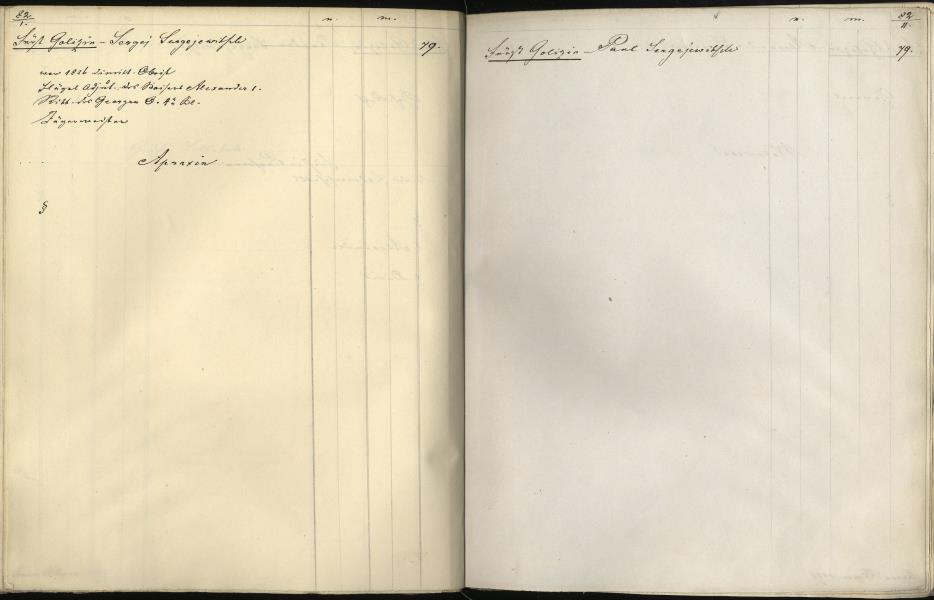 82
I.
n. m.
Fürst Golizin - Sergej Sergejewitsch 79.
war 1826 dimitt. Obrist
Flügel Adjut. des Kaisers Alexander I.
Ritt. des Georgen O. 4r Kl.
Jägermeister
Apraxin
§
n. m. 82
II.
Fürst Golizin - Paul Sergejewitsch 79.